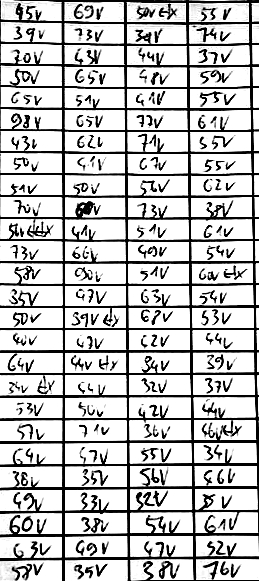 45v 69v 50v etx 53v
39v 73v 39v 74v
70v 43v 44v 37v
50v 65v 48v 59v
65v 51v 41v 55v
98v 65v 77v 61v
43v 62v 71v 35v
50v 41v 67v 55v
51v 50v 56v 62v
70v 73v 38v
41v 51v 61v
73v 66v 49v 54v
58v 51v
35v 47v 63v 54v
50v 39v 68v 53v
47v 62v 44v
64v 44v 34v 39v
44v 32v 37v
53v 50v 42v 44v
57v 71v 36v
64v 47v 55v 34v
38v 35v 56v 66v
49v 33v 32v
60v 38v 54v 61v
63v 49v 47v 52v
58v 35v 38v 76v